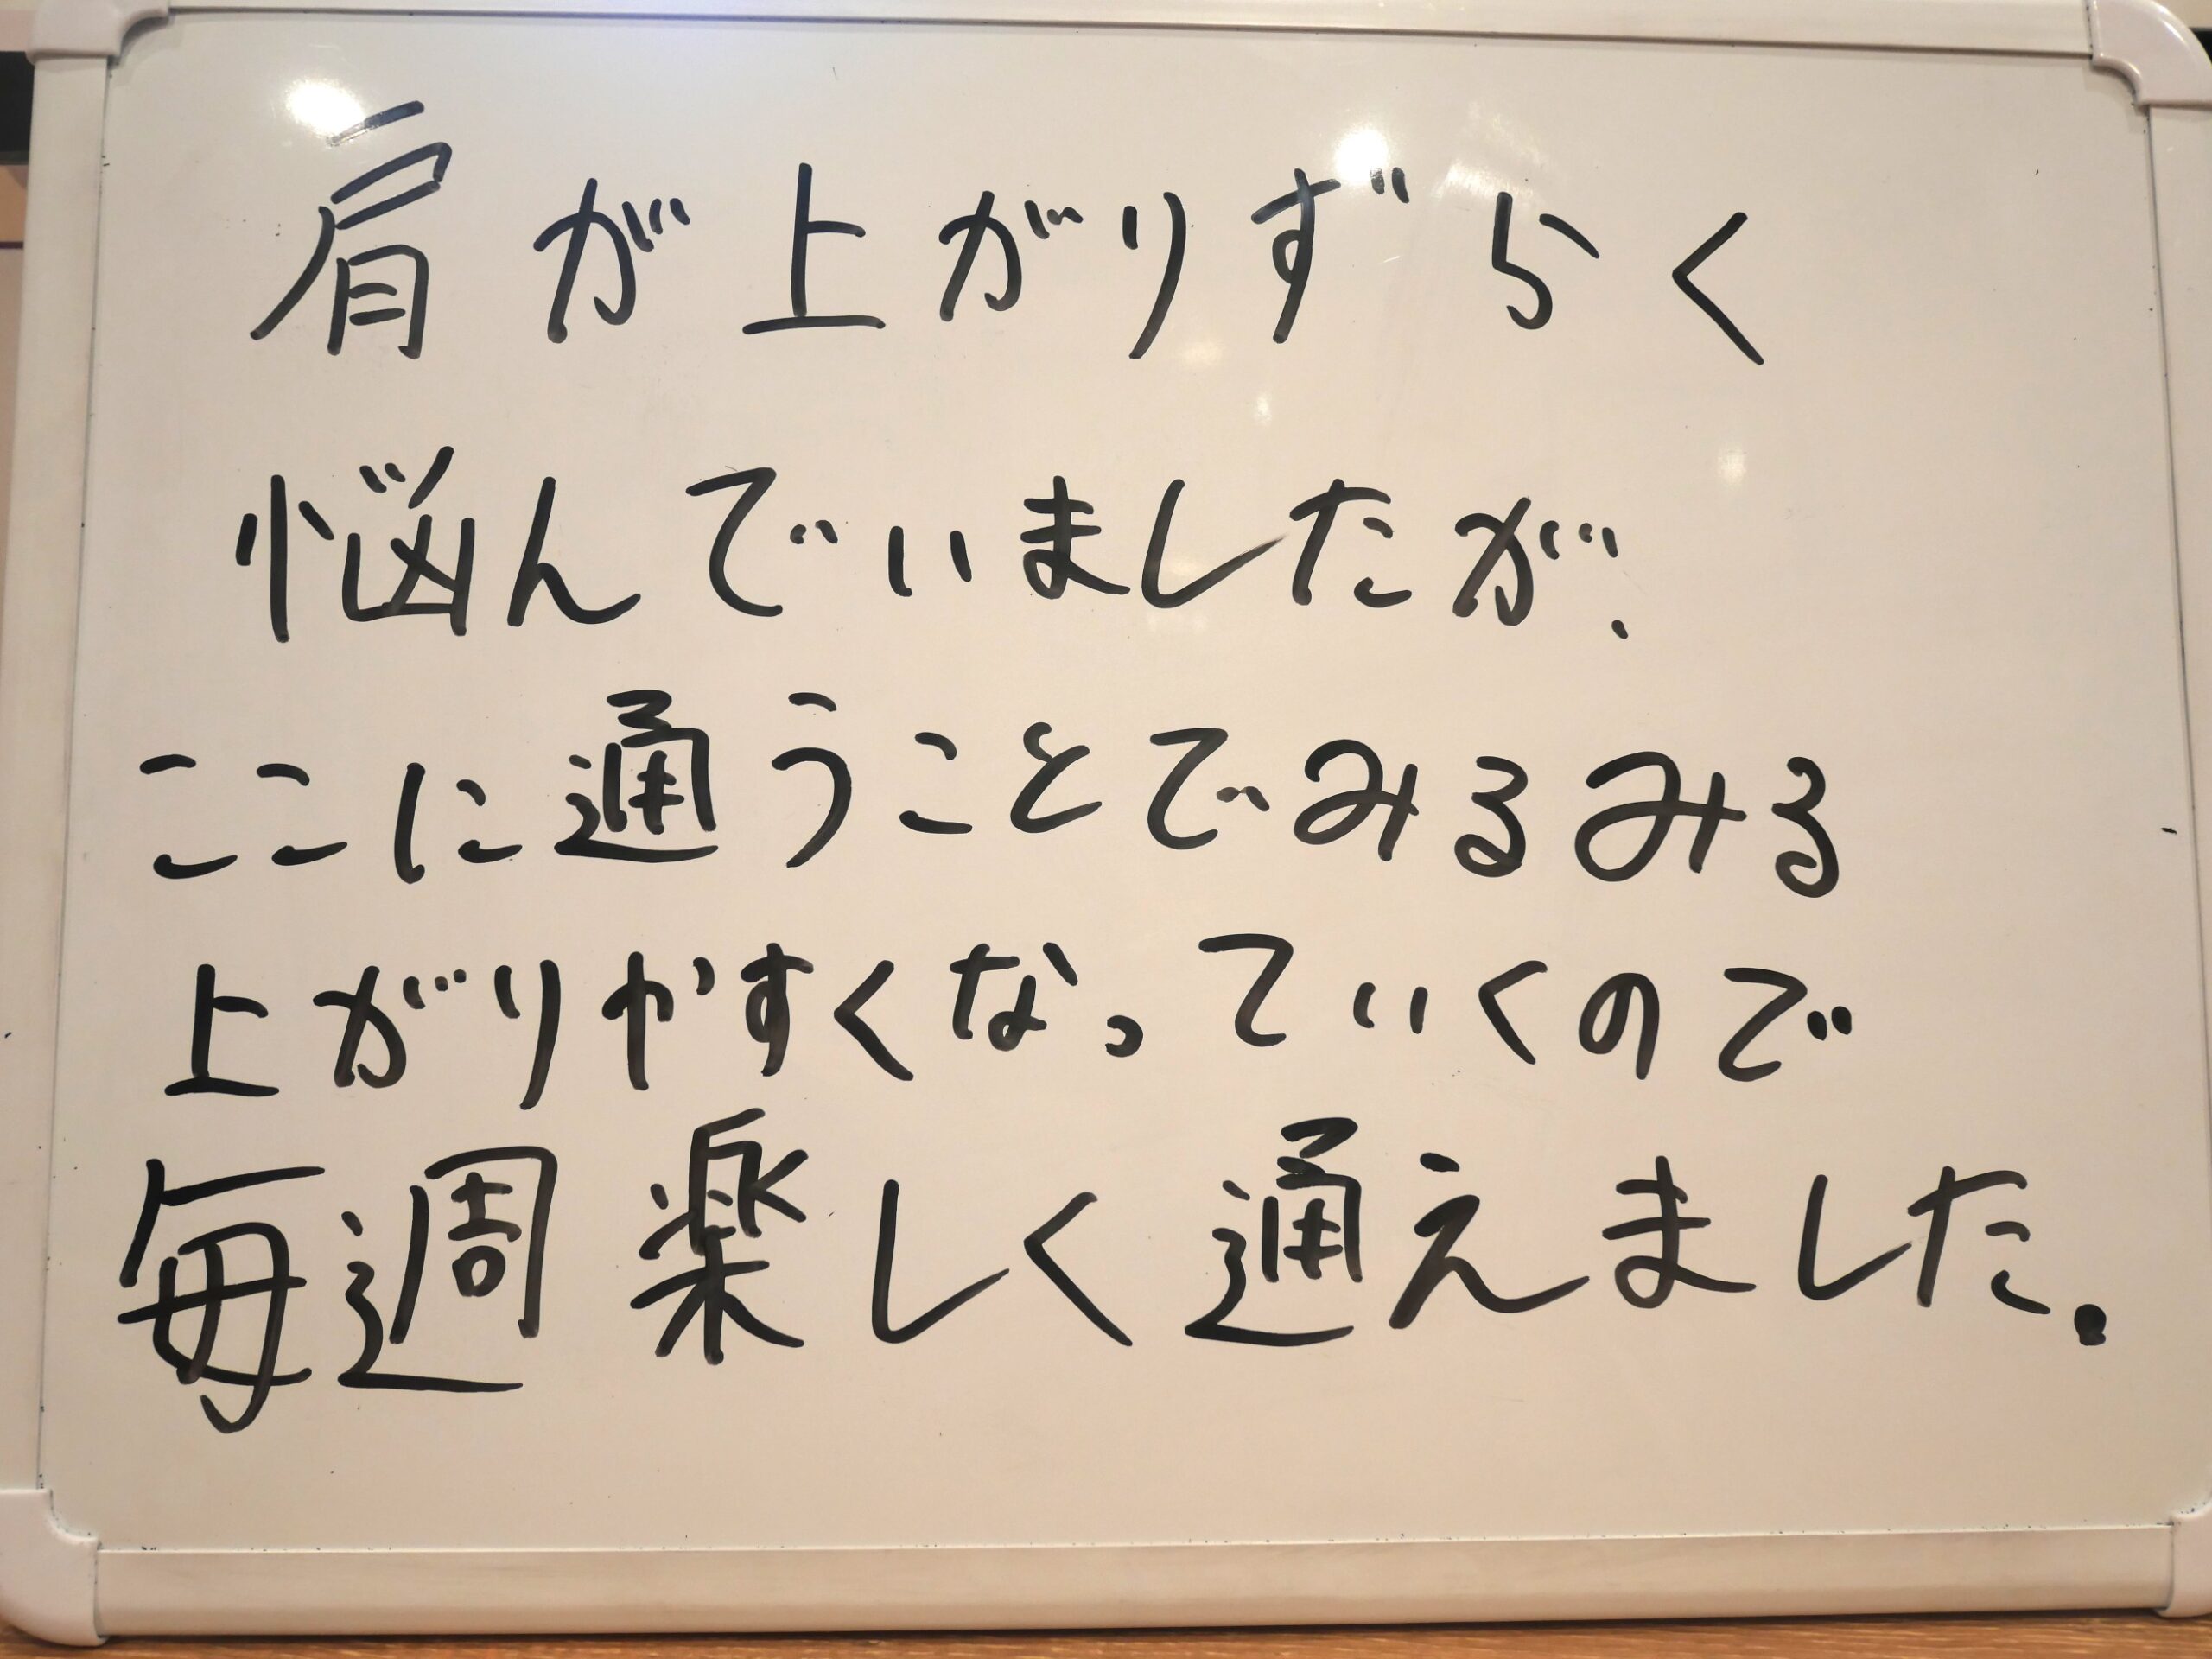 肩が上がりずらく
悩んでいましたが、
ここに通うことでみるみる
上がりやすくなっていくので
毎週楽しく通えました。